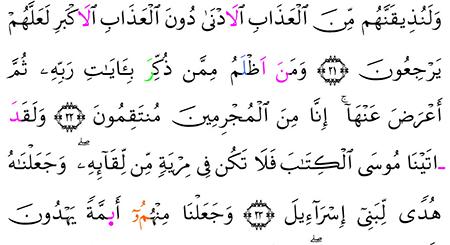 وَلَنُذِيقَنَّهُم مِّنَ ٱلْعَذَابِ ٱلَادْنَىٰ دُونَ ٱلْعَذَابِ ٱلَاكْبَرِ لَعَلَّهُمْ
يَرْجِعُونَ ۝٢١ وَمَنَ اَظْلَمُ مِمَّن ذُكِّرَ بِـَٔايَـٰتِ رَبِّهِۦ ثُمَّ
أَعْرَضَ عَنْهَآ ۚ إِنَّا مِنَ ٱلْمُجْرِمِينَ مُنتَقِمُونَ ۝٢٢ وَلَقَدَ
اتَيْنَا مُوسَى ٱلْكِتَـٰبَ فَلَا تَكُن فِى مِرْيَةٍ مِّن لِّقَآئِهِۦ ۖ وَجَعَلْنَـٰهُ
هُدًى لِّبَنِىٓ إِسْرَآءِيلَ ۝٢٣ وَجَعَلْنَا مِنْهُمُۥٓ أَبِمَّةً يَهْدُونَ